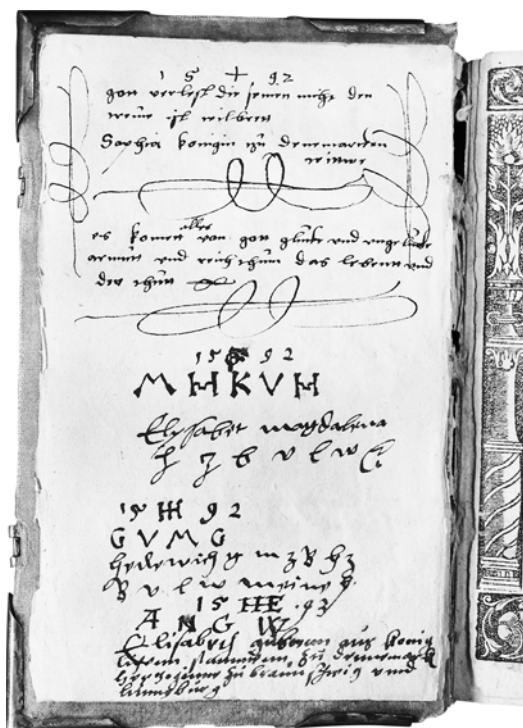 15 + 92
gott verlest die seinen nicht den
ist
Sophia konigin zu denemarcken
witwe
es komett alles von gott glucke und ungelucke
armutt und reichthum das lebenn und
der
15 92
M H K V H
Elysabet magdalena
h z b v l w
15 92
G V M G
hedewich g m z B h z
B v l w
15 HE 92
A N G W
Elisabeth geboren aus konig
lichem stammen zu denemarck
hertzoginne zu braunschwig und
lunneburg